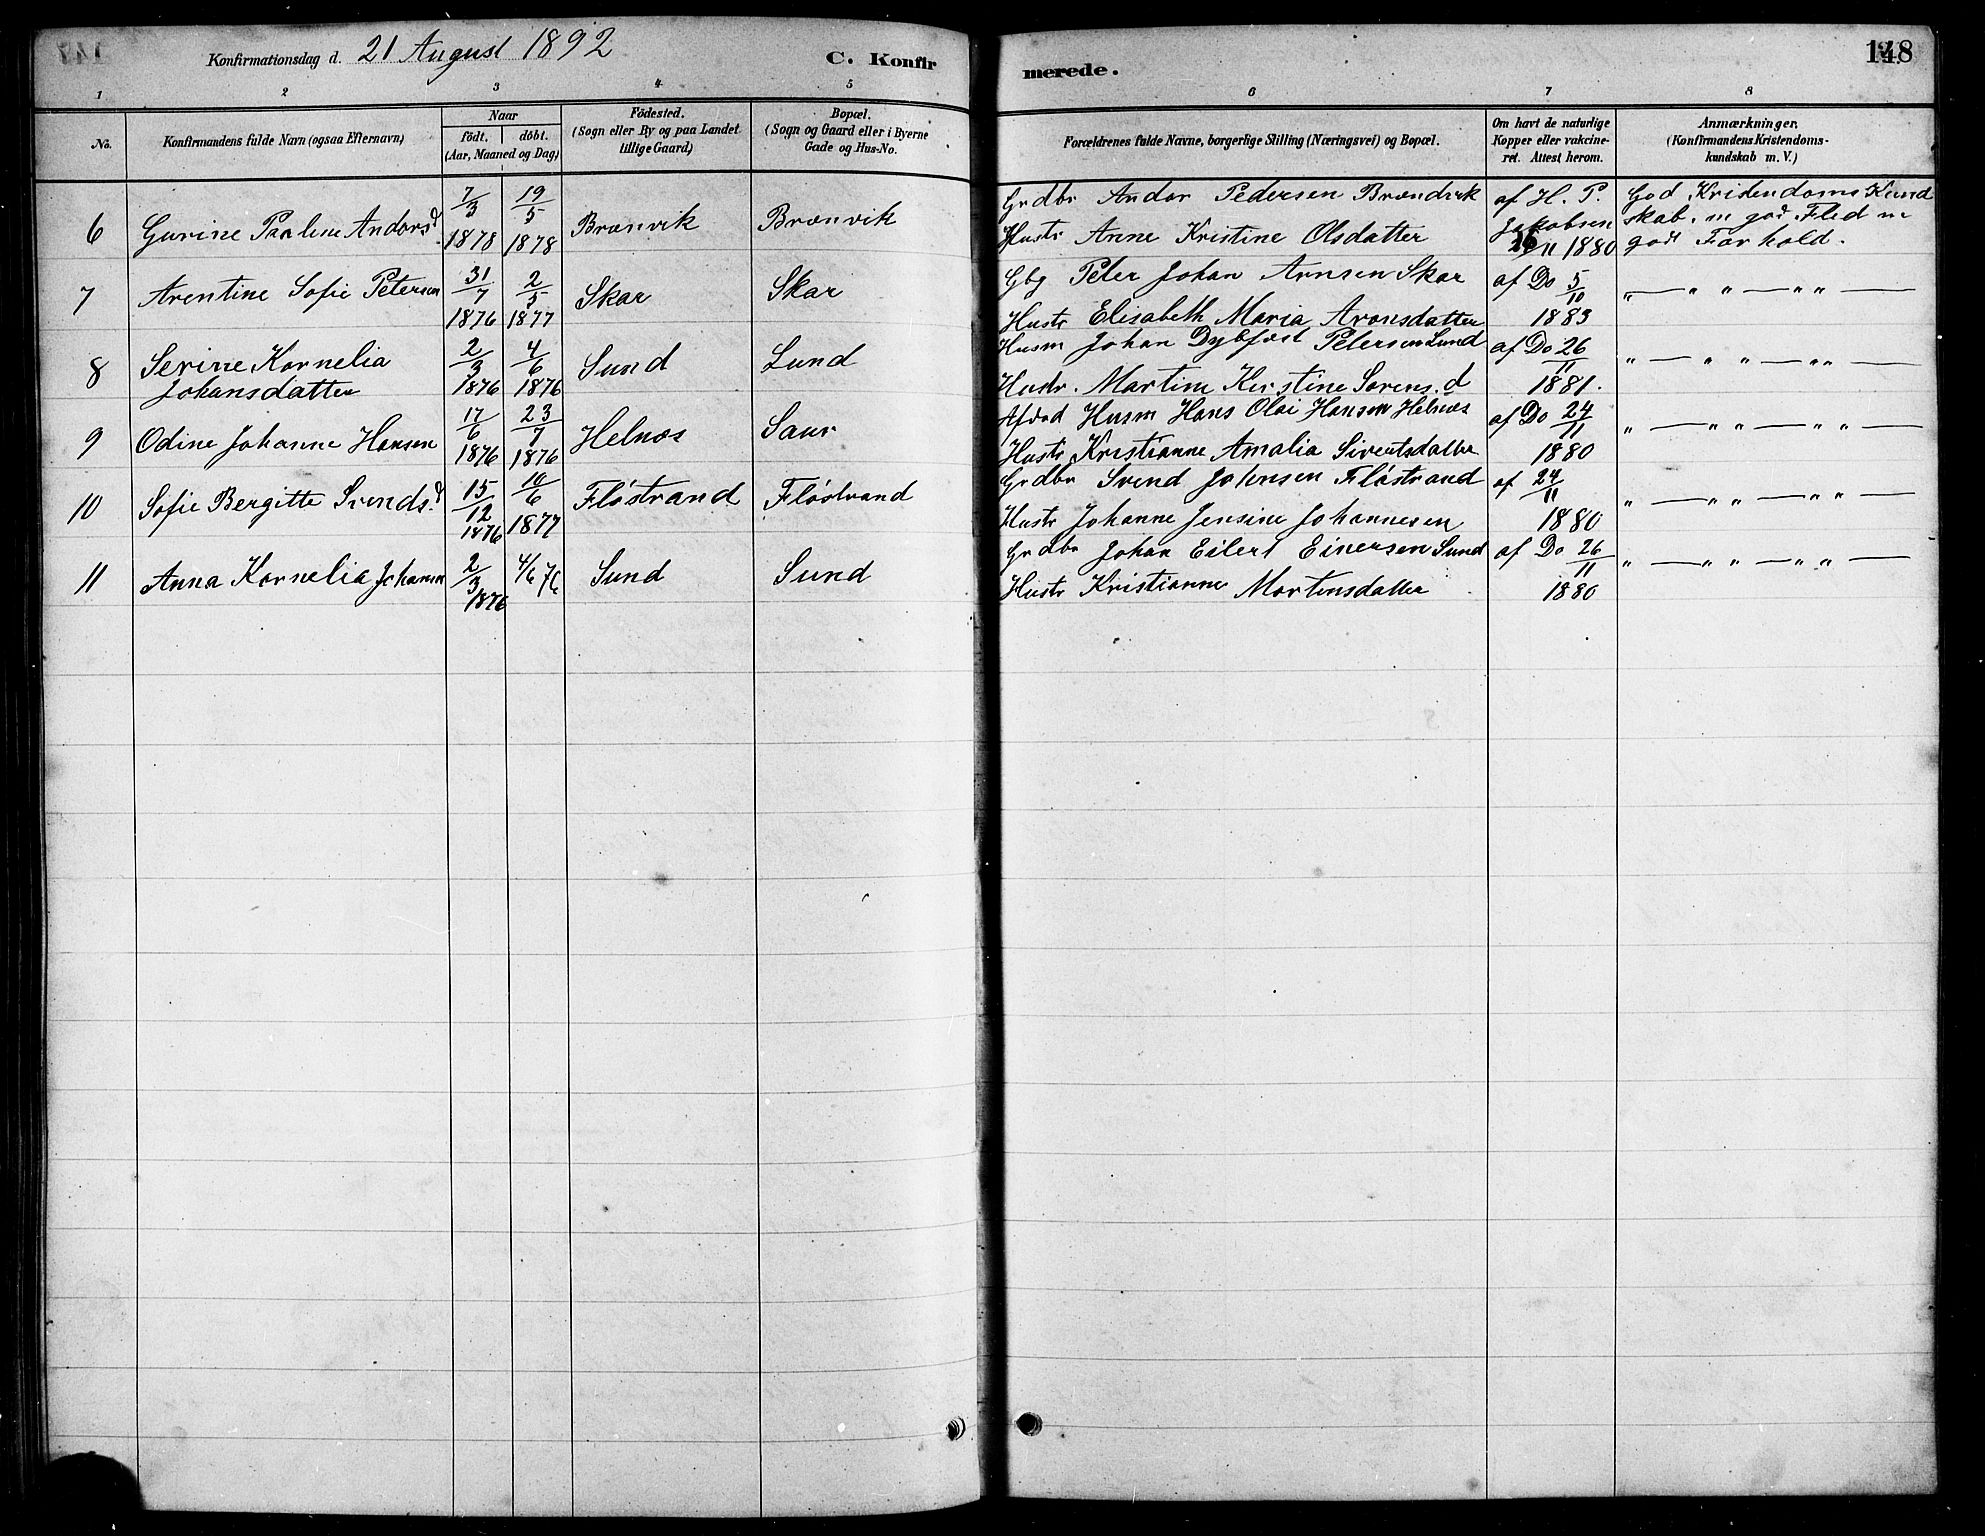 Konfirmationsdag d. 21 August 1892
C. Konfirmerede.
148
1 2 3 4 5 6 7 8
No.
Konfirmandens fulde Navn (ogsaa Efternavn)
Naar
födt. döbt.
(Aar, Maaned og Dag)
Födested.
(Sogn eller By og paa Landet
tillige Gaard)
Bopæl.
(Sogn og Gaard eller i Byerne
Gade og Hus-No.
Forældrenes fulde Navne, borgerlige Stilling (Næringsvei) og Bopæl.
Om havt de naturlige
Kopper eller vakcine-
ret. Attest herom.
Anmærkninger.
(Konfirmandens Kristendoms-
kundskab m. V.)
6 Gurine Paaline Andorsd. 7/3 1878 19/5 1878 Brænvik Brænvik
Grdbr Andor Pedersen Brændvik
Hustr Anne Kristine Olsdatter
af H. P.
Jakobsen
26/11 1880
God Kristendoms Kund
skab. m god Flid m
god Forhold.
7 Arentine Sofie Petersen 31/7 1876 2/5 1877 Skar Skar
Gbg Peter Johan Arnsen Skar
Hustr Elisabeth Maria Aronsdatter
af Do 5/10
1883
" — " " — " " —
8 Serine Kornelia
Johansdatter 2/3 1876 4/6 1876 Sund Lund
Husm Johan Dybfest Petersen Lund
Hustr. Martine Kerstine Sorens.d
af Do 26/11
1881.
" — " " — " " —
9 Odine Johanne Hansen 17/6 1876 23/7 1876 Helnæs Saur
Afdød Husm Hans Olai Hansen Helnæs
Hustr Kristianne Amalia Siversdatter
af Do 24/11
1880
" — " " — " " —
10 Sofie Bergitte Svends.d 15/12 1876 10/6 1877 Flöstrand Flöstrand
Grdbr Svend Johnsen Flöstrand
Hustr Johanne Jensine Johannesen
af 24/11
1880
" — " " — " " —
11 Anna Kornelia Johansen 2/3 1876 4/6 76 Sund Sund
Grdbr Johan Eilert Einersen Sund
Hustr Kristianne Mortensdatter
af Do 26/11
1880
" — " " — " " —